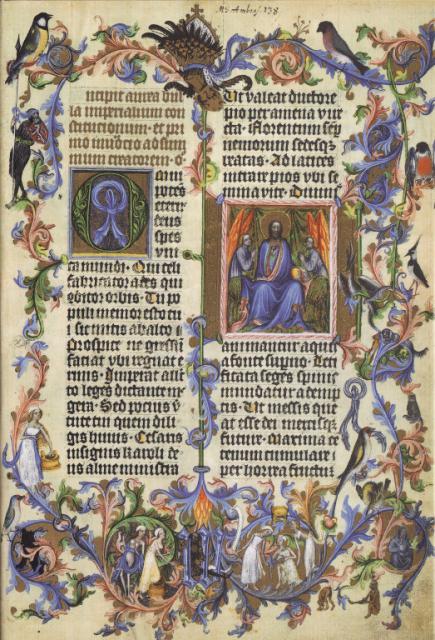 Ms Ambras 138
ncipit aurea bul
la imperialium con
stitucionum · et pri
mo inuocatio ad sum
mum creatorem · O
mni
potens
eterne
deus
spes
vni
ca mundi · Qui celi
fabricator ades qui
conditor orbis · Tu po
puli memor esto tu
i sic mitis ab alto
Prospice ne gressum
faciat vbi regnat e
rinis · Imperat alle
cto leges dictante me
gera · Sed pocius v
tute tui quem dili
gis huius · Cesaris
insignis karoli de
us alme ministra
Vt valeat ductore
pio per amena vire
ta · Florentum semp
nemorum sedesqz
beatas · Ad latices
intrare pios vbi se
mina vite · Diuini
s animantur aquis
a fonte supno · Leti
ficata seges spinis
mundatur ademp
tis · Vt messis que
at esse dei mercisqz
future · Maxima ce
tenum cumulare
per horrea fructum